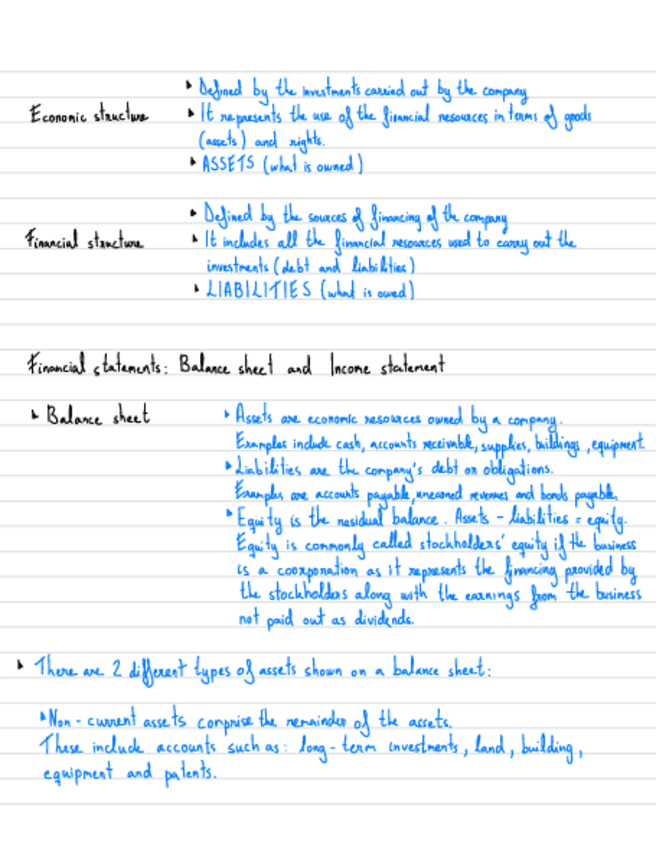 Economic structure
▸ Defined by the investments carried out by the company
▸ It represents the use of the financial resources in terms of goods
(assets) and rights.
▸ ASSETS (what is owned)
Financial structure
▸ Defined by the sources of financing of the company
▸ It includes all the financial resources used to carry out the
investments (debt and liabilities)
▸ LIABILITIES (what is owed)
Financial statements: Balance sheet and Income statement
▸ Balance sheet
▸ Assets are economic resources owned by a company.
Examples include cash, accounts receivable, supplies, buildings, equipment.
▸ Liabilities are the company's debt or obligations.
Examples are accounts payable, unearned revenues and bonds payable.
▸ Equity is the residual balance. Assets - liabilities = equity.
Equity is commonly called stockholders' equity if the business
is a coorporation as it represents the financing provided by
the stockholders along with the earnings from the business
not paid out as dividends.
▸ There are 2 different types of assets shown on a balance sheet:
▸ Non-current assets comprise the remainder of the assets.
These include accounts such as: long-term investments, land, building,
equipment and patents.